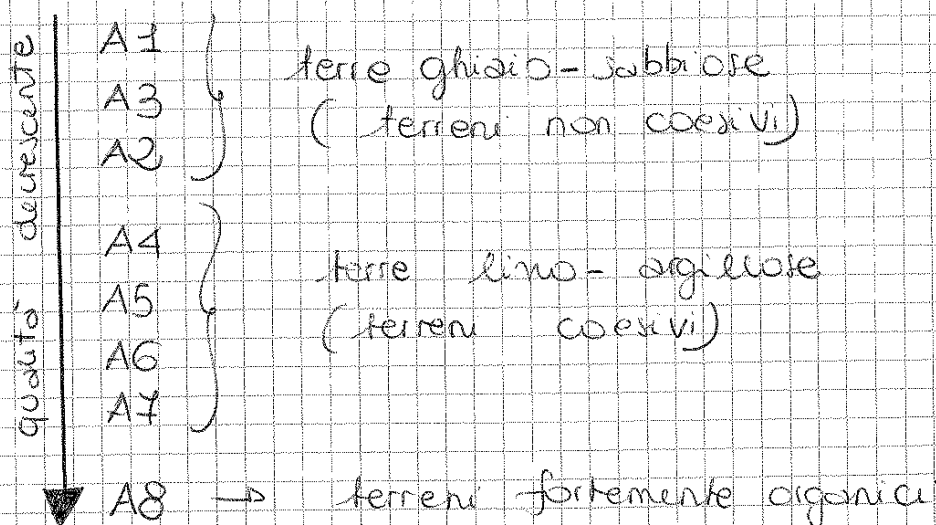 qualità decrescente
A1
A3
A2
terre ghiaio-sabbiose
(terreni non coesivi)
A4
A5
A6
A7
terre limo-argillose
(terreni coesivi)
A8 → terreni fortemente organici